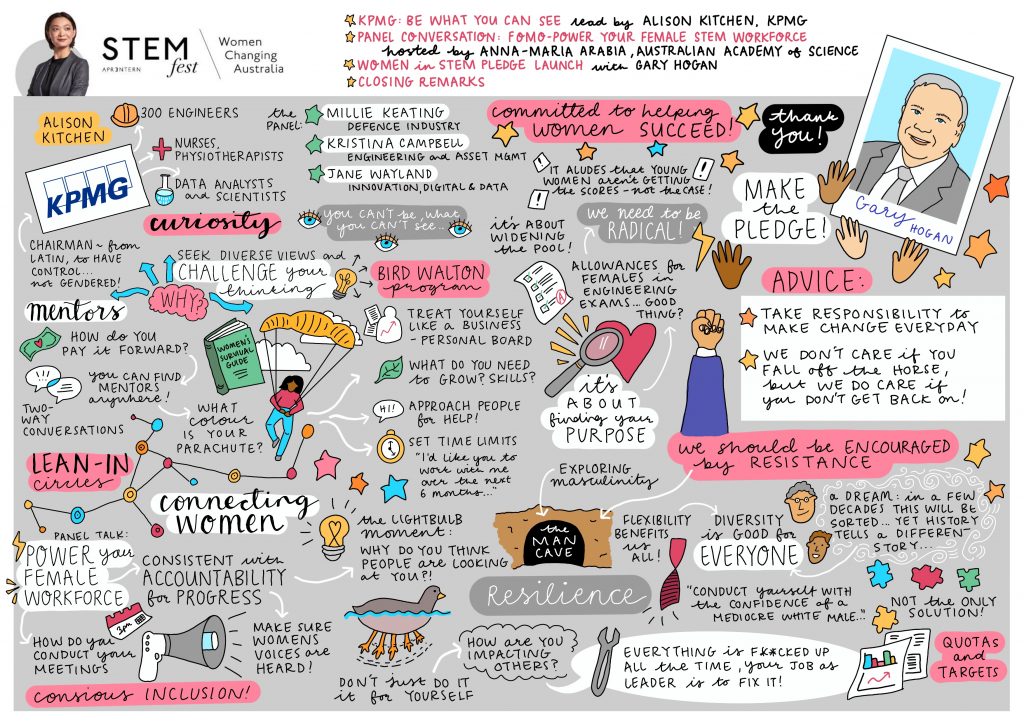 STEM
APR3NTERN
fest
Women
Changing
Australia
KPMG: BE WHAT YOU CAN SEE read by ALISON KITCHEN, KPMG
PANEL CONVERSATION: FOMO-POWER YOUR FEMALE STEM WORKFORCE
hosted by ANNA-MARIA ARABIA, AUSTRALIAN ACADEMY of SCIENCE
WOMEN in STEM PLEDGE LAUNCH with GARY HOGAN
CLOSING REMARKS
ALISON
KITCHEN
KPMG
300 ENGINEERS
NURSES,
PHYSIOTHERAPISTS
DATA ANALYSTS
and SCIENTISTS
CHAIRMAN ~ from
LATIN, to HAVE
CONTROL...
not GENDERED!
curiosity
SEEK DIVERSE VIEWS and
CHALLENGE your
thinking
WHY?
the
PANEL:
MILLIE KEATING
DEFENCE INDUSTRY
KRISTINA CAMPBELL
ENGINEERING and ASSET MGMT
JANE WAYLAND
INNOVATION, DIGITAL & DATA
you CAN'T be, what
you CAN'T SEE...
BIRD WALTON
program
TREAT YOURSELF
LIKE A BUSINESS
- PERSONAL BOARD
WHAT DO YOU NEED
to GROW? SKILLS?
HI!
APPROACH PEOPLE
for HELP!
SET TIME LIMITS
"I'd like you to
work with me
over the next
6 months..."
mentors
HOW do YOU
PAY it FORWARD?
you CAN FIND
MENTORS
anywhere!
TWO-
WAY
CONVERSATIONS
WOMEN'S
SURVIVAL
GUIDE
WHAT
colour
IS YOUR
PARACHUTE?
LEAN-IN
circles
connecting
WOMEN
PANEL TALK:
POWER your
FEMALE
WORKFORCE
CONSISTENT with
ACCOUNTABILITY
for PROGRESS
3pm
HOW do you
CONDUCT your
MEETINGS
MAKE SURE
WOMENS
VOICES are
HEARD!
CONSIOUS INCLUSION!
the LIGHTBULB
moment:
WHY DO YOU THINK
PEOPLE are LOOKING
at YOU?!
DON'T just DO it
it for YOURSELF
HOW are YOU
IMPACTING
OTHERS?
committed to helping
WOMEN SUCCEED!
IT ALUDES that YOUNG
WOMEN aren't GETTING
the SCORES - not the CASE!
it's ABOUT
WIDENING
the POOL!
we need to be
RADICAL!
ALLOWANCES for
FEMALES in
ENGINEERING
EXAMS... GOOD
THING?
A
it's
ABOUT
finding your
PURPOSE
EXPLORING
masculinity
the
MAN
CAVE
Resilience
FLEXIBILITY
BENEFITS
us
ALL!
DIVERSITY
is GOOD for
EVERYONE
"CONDUCT yourself WITH
the CONFIDENCE of a
MEDIOCRE WHITE MALE..."
EVERYTHING is F**CKED UP
ALL the TIME, your JOB as
LEADER is to FIX IT!
thank
you!
MAKE
the
PLEDGE!
Gary
HOGAN
ADVICE:
TAKE RESPONSIBILITY to
MAKE CHANGE EVERYDAY
WE DON'T CARE if YOU
FALL off the HORSE,
but WE DO CARE if
you DON'T GET BACK on!
we should be ENCOURAGED
by RESISTANCE
a DREAM: in a FEW
DECADES THIS WILL BE
SORTED... YET HISTORY
TELLS a DIFFERENT
STORY...
NOT the ONLY
SOLUTION!
QUOTAS
and
TARGETS